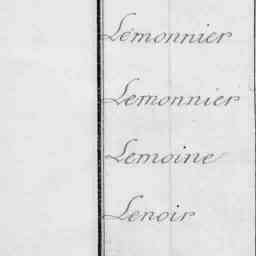 Lemonnier
Lemonnier
Lemoine
Lenoir